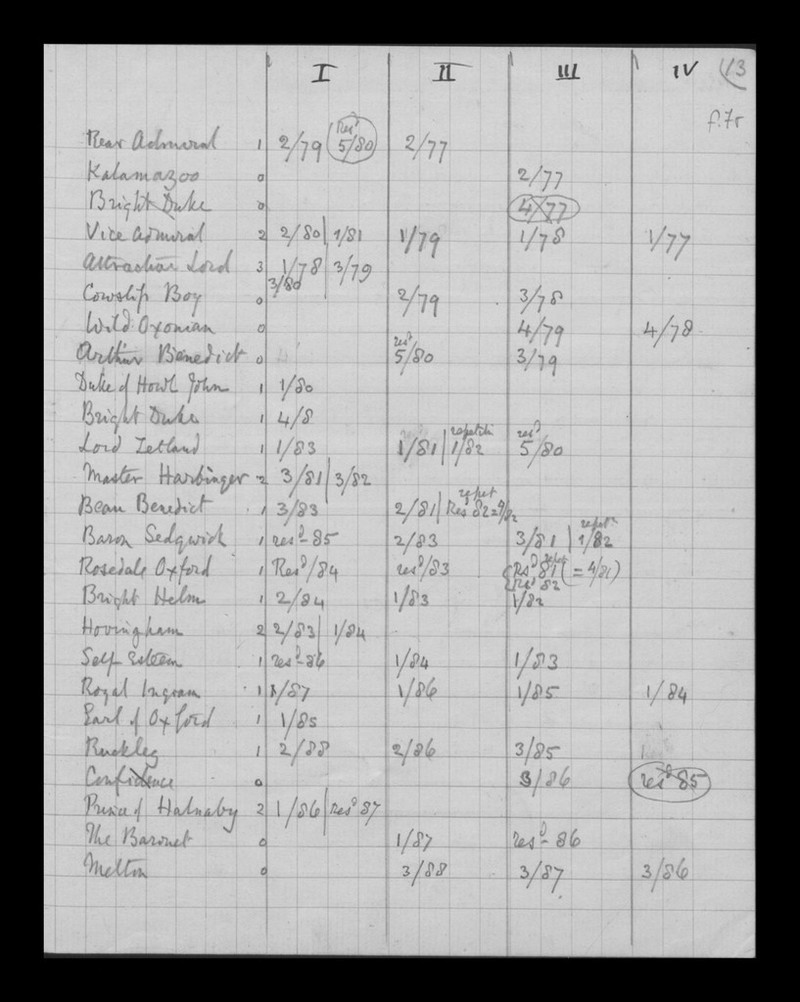 I II III IV 43
f.7r
Rear Admiral 1 2/79 | resd 5/80 2/77
Kalamazoo 0 2/77
Bright Duke 0 4/77
Vice Admiral 2 2/80 | 1/81 1/79 1/78 1/77
Attraction Lord 3 1/78 | 3/79
3/80
Cowslip Boy 0 2/79 3/78
Wild Oxonian 0 4/79 4/78
Arthur Benedict 0 resd 5/80 3/79
Duke of Howl John 1 1/80
Bright Duke 1 4/8
Lord Zetland 1 1/83 1/81 | repetn 1/82 resd 5/80
Master Harbinger 2 3/81 | 3/82
Beau Benedict 1 3/83 2/81 | repet Resd 82 = 4/82
Baron Sedgwick 1 resd-85 2/83 3/81 | repetn 1/82
Rosedale Oxford 1 Resd/84 resd/83 Rsd 81 repet (= 4/81)
Rsd 82
Bright Helm 1 2/84 1/83 1/82
Hovingham 2 2/83 | 1/84
Self Esteem 1 resd-86 1/84 1/83
Royal Ingram 1 1/87 1/86 1/85 1/84
Earl of Oxford 1 1/85
Ruckley 1 2/88 2/86 3/85
Confidence 0 3/86 resd 85
Prince of Halnaby 2 1/86 | resd 87
The Baronet 0 1/87 resd-86
Melton 0 3/88 3/87 3/86